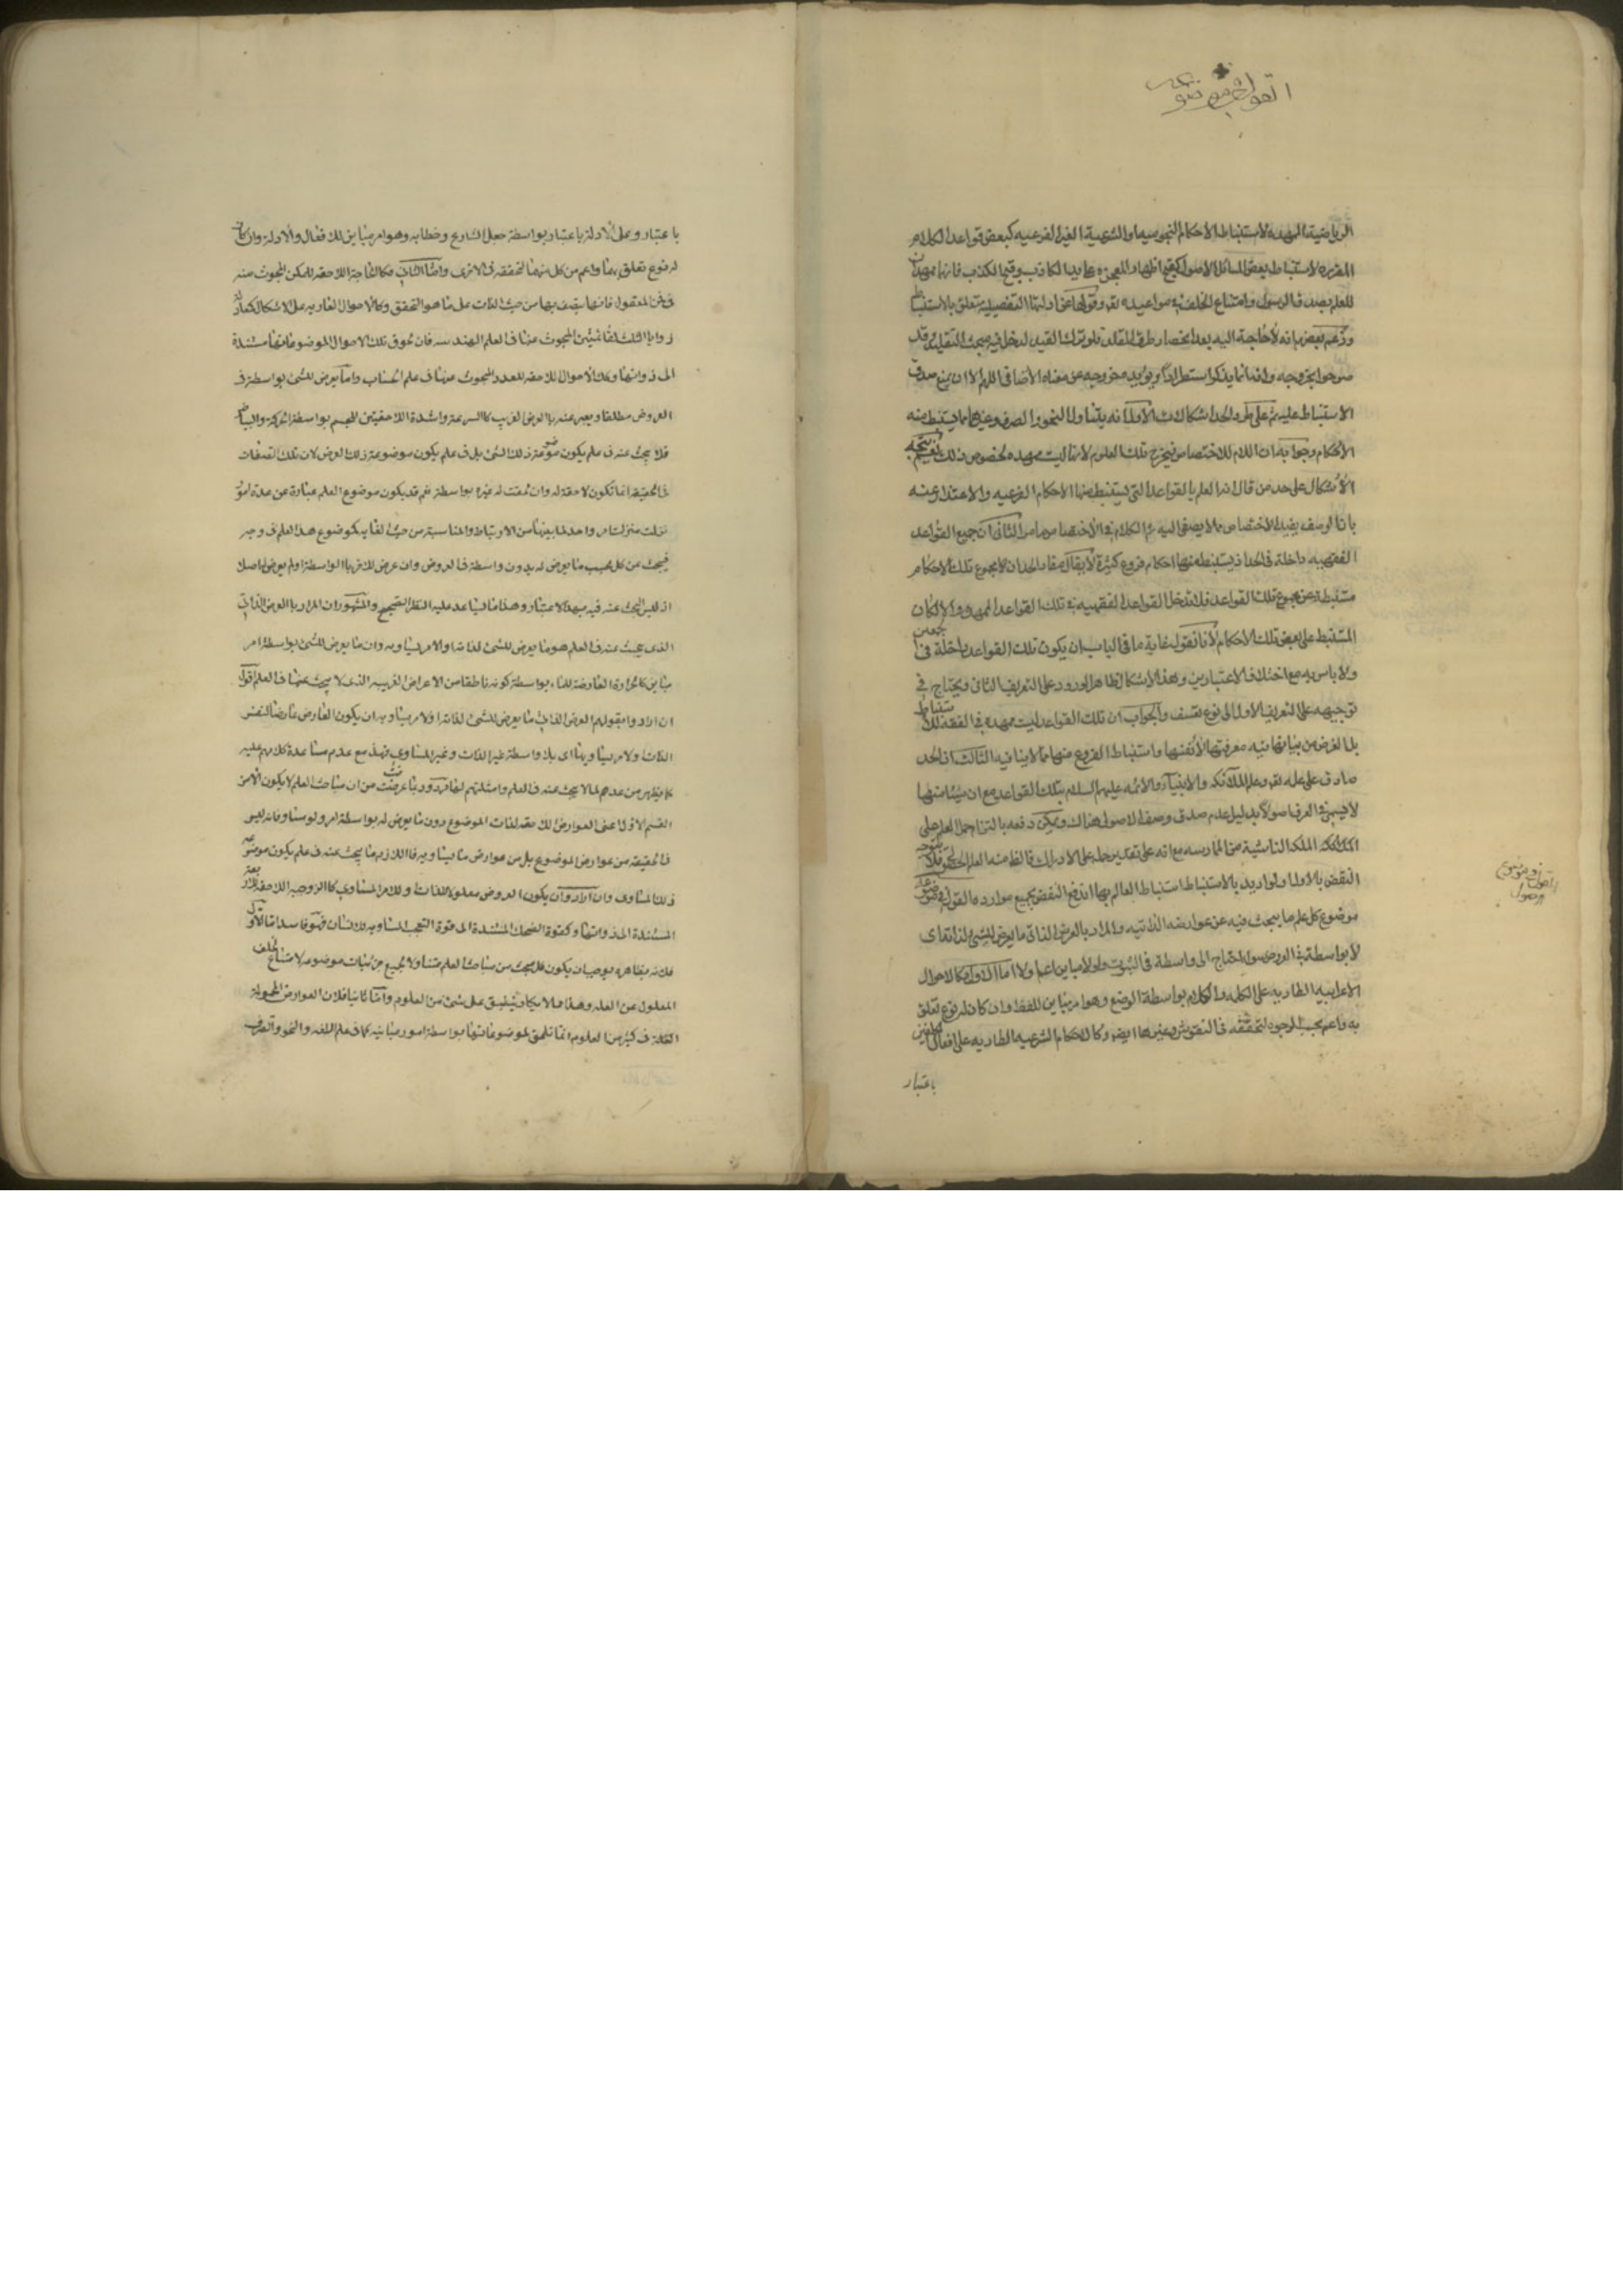 القول في موضوعه
الرياضية الممهدة لاستنباط الاحكام النجومية او الشرعية الغير الفرعيه كبعض قواعد الكلام
المقرره لاستنباط بعض المسائل الاصولية كقبح اظهار المعجزه على يد الكاذب وقبح الكذب فانها ممهدتان
للعلم بصدق الرسول وامتناع الخلف في مواعيده تعالى وقولنا عن ادلتها التفصيلية متعلق بالاستنباط
وزعم بعضهم انه لا حاجة اليه
صرحوا بخروجه وانه انما يذكر استطرادا ويؤيده خروجه عن معناه الاضافي اللهم الا ان يمنع صدق
الاستنباط عليه ثم على طرد الحد اشكالات الاول انه يتناول النحو والصرف وغيرهما مما يستنبط منه
الاحكام وجوابه ان اللام للاختصاص فيخرج تلك العلوم لانها ليست ممهدة لخصوص ذلك نعم يتجه
الاشكال على حد من قال انه العلم بالقواعد التي يستنبط منها الاحكام الفرعيه والاعتذار عنه
بان الوصف يفيد الاختصاص مما لا يصغى اليه ثم الكلام في الاختصاص ما مر الثاني ان جميع القواعد
الفقهيه داخلة في الحد اذ يستنبط منها احكام فروع كثيرة لا يقال مفاد الحد ان لا مجموع تلك الاحكام
مستنبطة عن مجموع تلك القواعد فلا تدخل القواعد الفقهيه في تلك القواعد الممهدة والا لكان
المستنبط على بعض تلك الاحكام لانا نقول غاية ما في الباب ان يكون تلك القواعد داخلة في الجهتين
ولا باس به مع اختلاف الاعتبارين وهذا الاشكال ظاهر الورود على التعريف الثاني ويحتاج في
توجيهه على التعريف الاول الى نوع تعسف والجواب ان تلك القواعد ليست ممهدة في الفقه للاستنباط
بل الغرض من بيانها فيه معرفتها لانفسها واستنباط الفروع منها مما لا ينافيه الثالث ان الحد
صادق على علمه تعالى وعلم الملائكه والانبياء والائمه عليهم السلام بتلك القواعد مع ان شيئا منها
لا يسمى في العرف اصولا بدليل عدم صدق وصف الاصولي هناك ويمكن دفعه بالتزام حمل العلم على
الملكه الناشية من الممارسه مع انه على تقدير حمله على الادراك
النقض بالاول ولو اريد بالاستنباط استنباط العالم بها اندفع النقض بجميع موارده القول في موضوعه
موضوع كل علم ما يبحث فيه عن عوارضه الذاتيه والمراد بالعرض الذاتي ما يعرض للشيء لذاته اي
لا بواسطة في العروض سواء احتاج الى واسطة في الثبوت ولو الى مباين اعم اولا اما الاول فكالاحوال
الاعرابيه الطاريه على الكلمه والكلام بواسطة الوضع وهو امر مباين للفظ وان كان له نوع تعلق
به واعم بحسب الوجود لتحققه في النقوش وغيرها ايضا وكالاحكام الشرعيه الطاريه على افعال المكلفين
باعتبار
القول في موضوع
الاصول
باعتبار وعلى الادلة باعتبار بواسطة جعل الشارع وخطابه وهو امر مباين للافعال والادلة وان كان
له نوع تعلق بهما واعم من كل منهما لتحققه في الاخرى واما الثاني فكالحاجة اللاحقه للممكن المبحوث عنه
في فن المعقول فانها يتصف بها من حيث الذات على ما هو التحقق وكالاحوال الطاريه على الاشكال كتساوي
زوايا المثلث لقائمتين المبحوث عنها في العلم الهندسه فان لحوق تلك الاحوال لموضوعاتها مستندة
الى ذواتها وكالاحوال اللاحقه للعدد المبحوث عنها في علم الحساب واما ما يعرض للشئ بواسطة في
العروض مطلقا ويعبر عنه بالعرض الغريب كالسرعة والشدة اللاحقتين للجسم بواسطة الحركة والبياض
فلا يبحث عنه في علم يكون موضوعه ذلك الشئ بل في علم يكون موضوعه ذلك العرض لان تلك الصفات
في الحقيقة انما تكون لاحقة له وان لحقت له غيره بواسطته نعم قد يكون موضوع العلم عبارة عن عدة امور
نزلت منزلة امر واحد لما بينها من الارتباط والمناسبة من حيث الغايه كموضوع هذا العلم في وجه
فيبحث عن كل بحسب ما يعرض له بدون واسطة في العروض وان عرض للاخر بالواسطة او لم يعرض له اصلا
اذ ليس البحث عنه فيه بهذا الاعتبار وهذا ما يساعد عليه النظر الصحيح والمشهور ان المراد بالعرض الذاتي
الذي يبحث عنه في العلم هو ما يعرض للشئ لذاته او لامر يساويه وان ما يعرض للشئ بواسطة امر
مباين كالحرارة العارضة للماء بواسطة كونه ناطقا من الاعراض الغريبه الذي لا يبحث عنها في العلم اقول
ان ارادوا بقولهم العرض الذاتي ما يعرض للشئ لذاته او لامر يساويه ان يكون العارض عارضا لنفس
الذات او لامر يساويها اي بلا واسطة غير الذات وغير المساوي فهذا مع عدم مساعدة كلامهم عليه
كما يظهر من عدهم لما لا يبحث عنه في العلم وامثلتهم لها مردود بما عرفت من ان مباحث العلم لا يكون الا من
القسم الاول اعني العوارض اللاحقه لذات الموضوع دون ما يعرض له بواسطة امر ولو مساو فانه ليس
في الحقيقه من عوارض الموضوع بل من عوارض ما يساويه فاللازم ما يبحث عنه في علم يكون موضوعه
ذلك المساوي وان ارادوا ان يكون العروض معلولا للذات او للامر المساوي كالزوجيه اللاحقه للاربعة
المستندة الى ذواتها وكقوة الضحك المستندة الى قوة التعجب المساويه للانسان فهو فاسد اما اولا
فلانه بظاهره يوجب ان يكون المبحث من مباحث العلم متناولا لجميع جزئيات موضوعه لامتناع تخلف
المعلول عن العله وهذا مما لا يكاد ينطبق على شئ من العلوم واما ثانيا فلان العوارض المحمولة
في كثير من العلوم انما تلحق لموضوعاتها بواسطة امور مباينه كما في علم اللغه والنحو والصرف